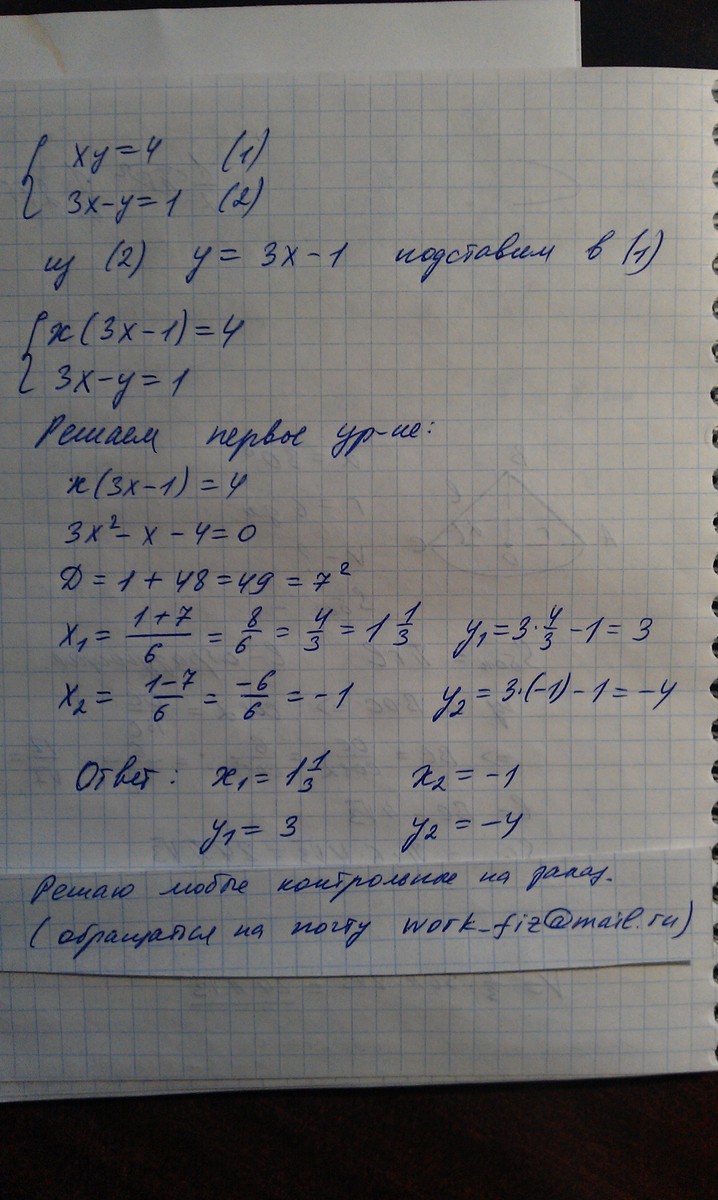 { xy = 4 (1)
3x - y = 1 (2)
из (2) y = 3x - 1 подставим в (1)
{ x(3x - 1) = 4
3x - y = 1
Решаем первое ур-ие:
x(3x - 1) = 4
3x² - x - 4 = 0
D = 1 + 48 = 49 = 7²
x₁ = (1+7)/6 = 8/6 = 4/3 = 1 1/3 y₁ = 3·4/3 - 1 = 3
x₂ = (1-7)/6 = -6/6 = -1 y₂ = 3·(-1) - 1 = -4
Ответ: x₁ = 1 1/3 x₂ = -1
y₁ = 3 y₂ = -4
Решаю любые контрольные на заказ.
(обращаться на почту work_fiz@mail.ru)